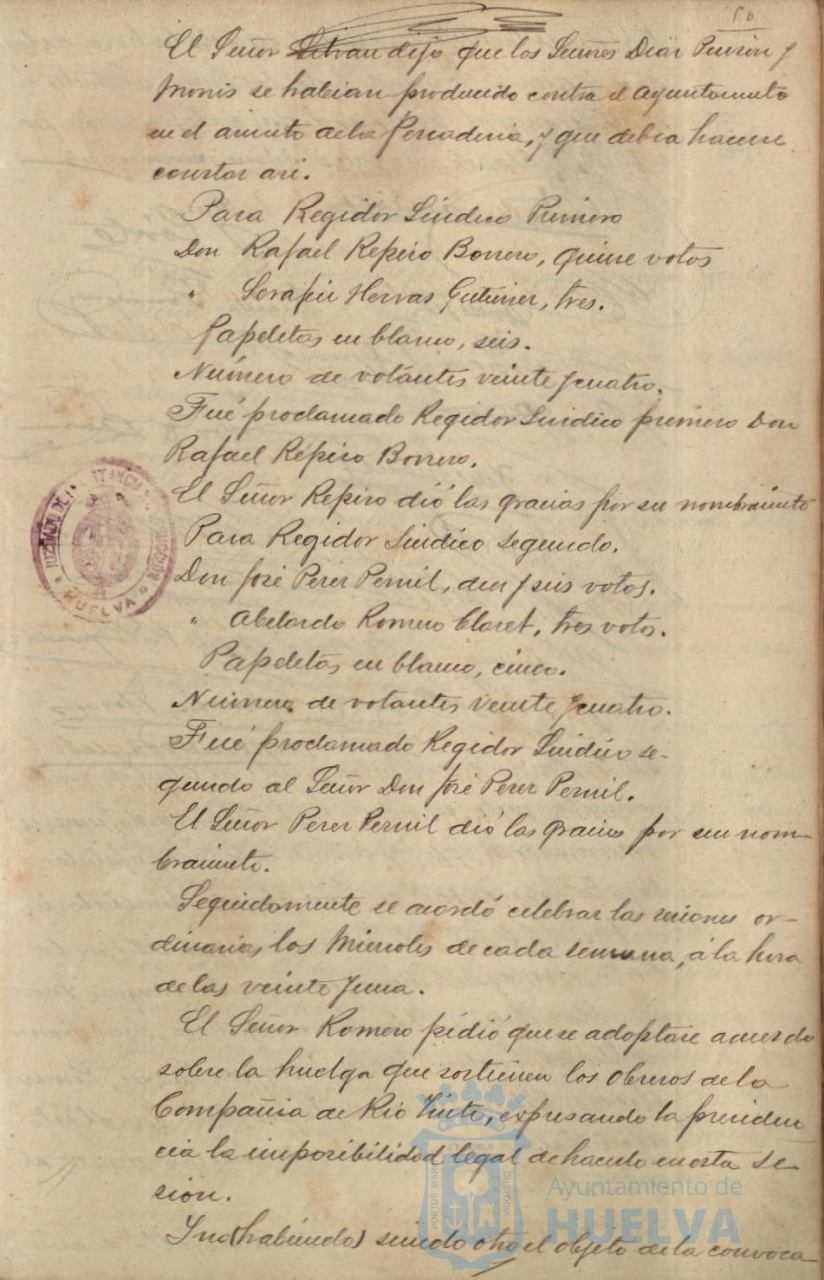 El Señor Litran dijo que los Señores Diaz Pinzón y
Monis se habian producido contra el Ayuntamiento
en el asunto de la Pescaderia, y que debia hacerse
constar asi.
Para Regidor Sindico Primero
Don Rafael Repiso Borrero, quince votos
" Serafin Hervas Gutierrez, tres.
Papeletas en blanco, seis.
Número de votantes veinte y cuatro.
Fué proclamado Regidor Sindico primero Don
Rafael Repiso Borrero.
El Señor Repiso dió las gracias por su nombramiento
Para Regidor Sindico segundo.
Don José Perez Pernil, diez y seis votos.
" Abelardo Romero Claret, tres votos.
Papeletas en blanco, cinco.
Número de votantes veinte y cuatro.
Fué proclamado Regidor Sindico se-
gundo al Señor Don José Perez Pernil.
El Señor Perez Pernil dió las gracias por su nom-
bramiento.
Seguidamente se acordó celebrar las sesiones or-
dinarias los Miercoles de cada semana, á la hora
de las veinte y una.
El Señor Romero pidió que se adoptase acuerdo
sobre la huelga que sostienen los obreros de la
Compañia de Rio Tinto, expresando la presiden
cia la imposibilidad legal de hacerlo en esta se-
sion.
Y no (habiendo) siendo otro el objeto de la convoca
HUELVA
Ayuntamiento de
HUELVA